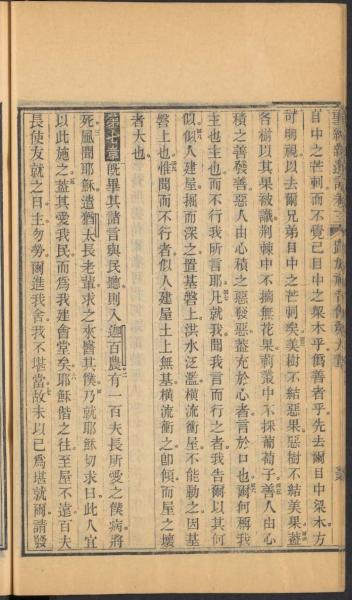 目中之芒刺而不覺已目中之梁木乎爲善者乎先去爾目中梁木方
可明視以去爾兄弟目中之芒刺矣美樹不結惡果惡樹不結美果蓋
各樹以其果被識荆棘中不摘無花果荊叢中不採葡萄子善人由心
積之善發善惡人由心積之惡發惡蓋充於心者言於口也爾何稱我
主也主也而不行我所言耶凡就我聞我言而行之者我告爾以其何
似似人建屋掘而深之置基磐上洪水泛濫橫流衝屋不能動之因基
磐上也惟聞而不行者似人建屋土上無基橫流衝之卽傾而屋之壞
者大也
第七章旣畢其諸言與民聽則入迦百農有一百夫長所愛之僕病將
死風聞耶穌遣猶太長老輩求之來醫其僕乃就耶穌切求曰此人宜
以此施之蓋其愛我民而爲我建會堂矣耶穌偕之往至屋不遠百夫
長使友就之曰主勿勞爾進我舍我不堪當故未以已爲堪就爾請發